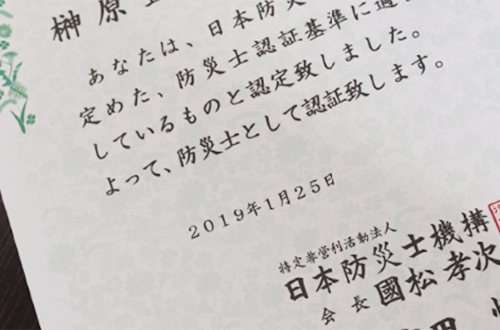 榊原
あなたは、日本防災
定めた、防災士認証基準に適
しているものと認定致しました。
よって、防災士として認証致します。
2019年1月25日
特定非営利活動法人
日本防災士機構
会長 國松孝次